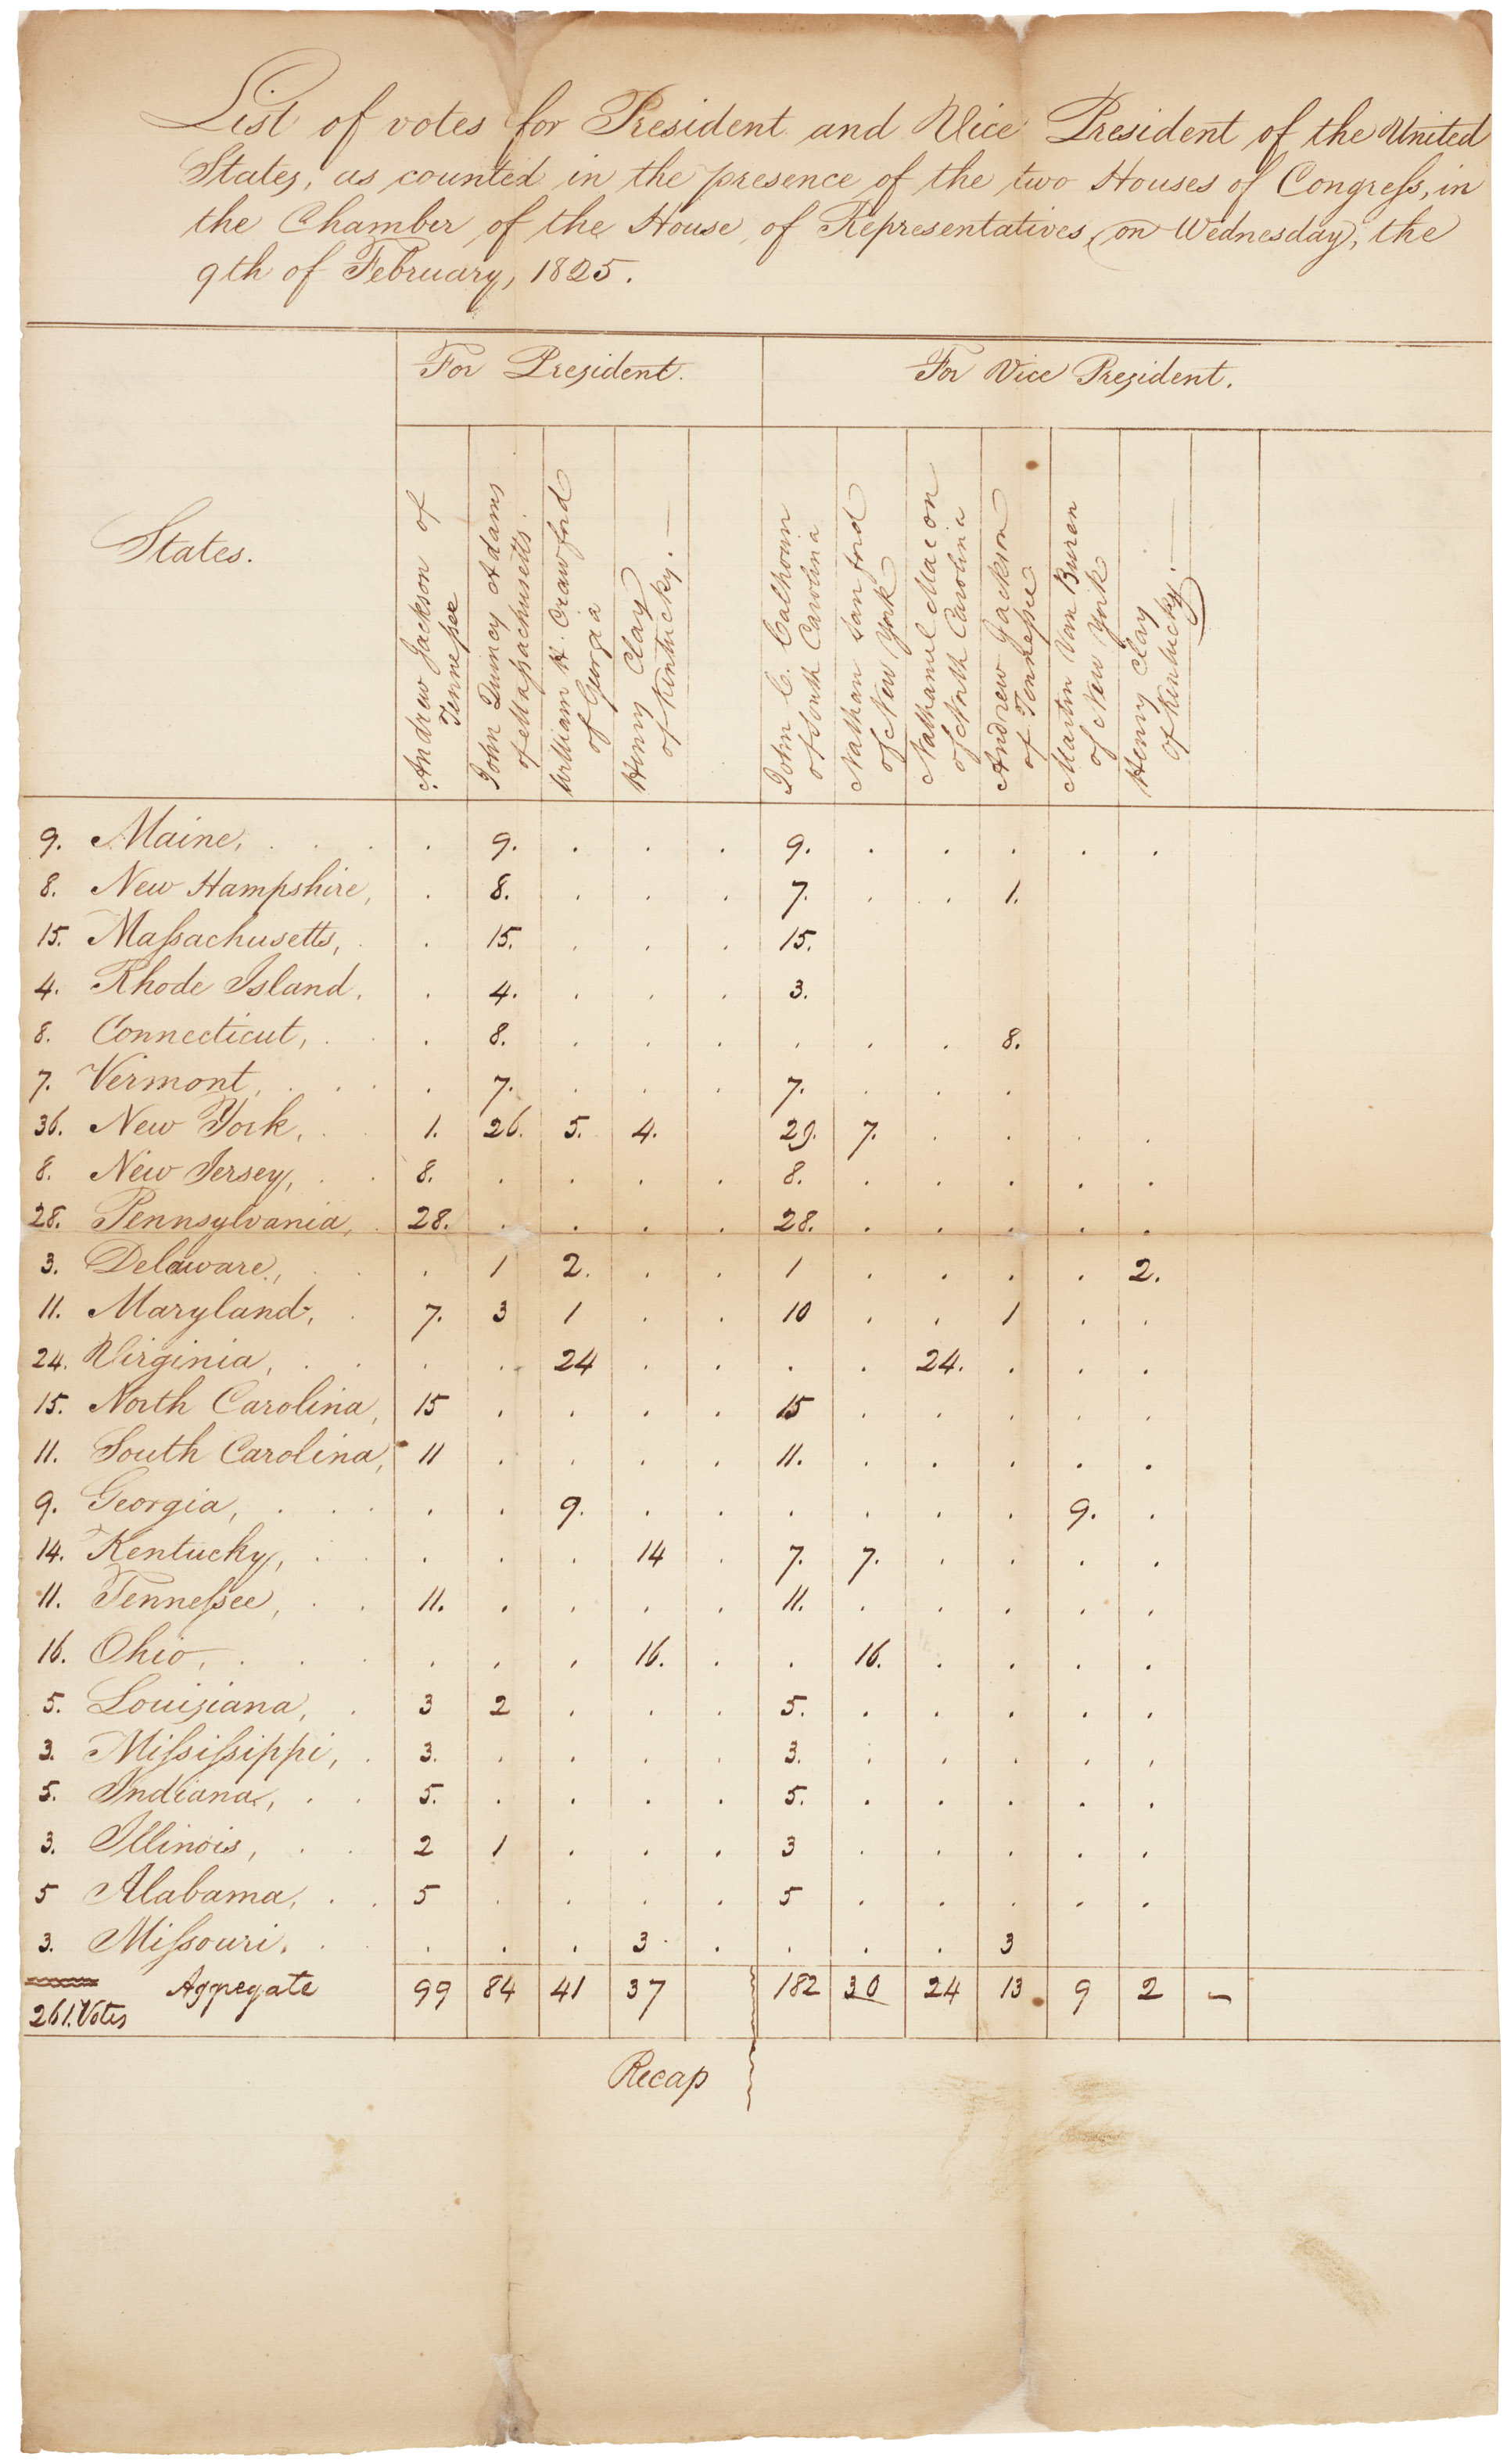 List of votes for President and Vice President of the United
States, as counted in the presence of the two Houses of Congress, in
the Chamber of the House of Representatives, on Wednesday, the
9th of February, 1825.
For President. For Vice President.
States.
Andrew Jackson of
Tennessee
John Quincy Adams
of Massachusetts.
William H. Crawford
of Georgia
Henry Clay
of Kentucky.
John C. Calhoun
of South Carolina
Nathan Sanford
of New York
Nathaniel Macon
of North Carolina
Andrew Jackson
of Tennessee
Martin Van Buren
of New York
Henry Clay
of Kentucky.
9. Maine, . . . . 9. . . . 9. . . . . .
8. New Hampshire, . 8. . . . 7. . . 1.
15. Massachusetts, . . 15. . . . 15.
4. Rhode Island. . 4. . . . 3.
8. Connecticut, . . . 8. . . . . . . 8.
7. Vermont, . . . . 7. . . . 7. . . .
36. New York, . . 1. 26. 5. 4. 29. 7. . . . .
8. New Jersey, . . 8. . . . . 8. . . . . .
28. Pennsylvania, . 28. . . . . 28. . . . . .
3. Delaware, . . . 1 2. . . 1 . . . . 2.
11. Maryland, . 7. 3 1 . . 10 . . 1 . .
24. Virginia, . . . . 24 . . . . 24. . . .
15. North Carolina, 15 . . . . 15 . . . . .
11. South Carolina, 11 . . . . 11. . . . . .
9. Georgia, . . . . . 9. . . . . . . 9. .
14. Kentucky, . . . . . 14 . 7. 7. . . . .
11. Tennessee, . . 11. . . . . 11. . . . . .
16. Ohio, . . . . . . 16. . . 16. . . . .
5. Louisiana, . 3 2 . . . 5. . . . . .
3. Mississippi, . 3. . . . . 3. . . . . .
5. Indiana, . . 5. . . . . 5. . . . . .
3. Illinois, . . 2 1 . . . 3 . . . . .
5 Alabama, . . 5 . . . . 5 . . . . .
3. Missouri. . . . . . 3 . . . . 3
Aggregate 99 84 41 37 182 30 24 13 9 2 -
261. Votes
Recap